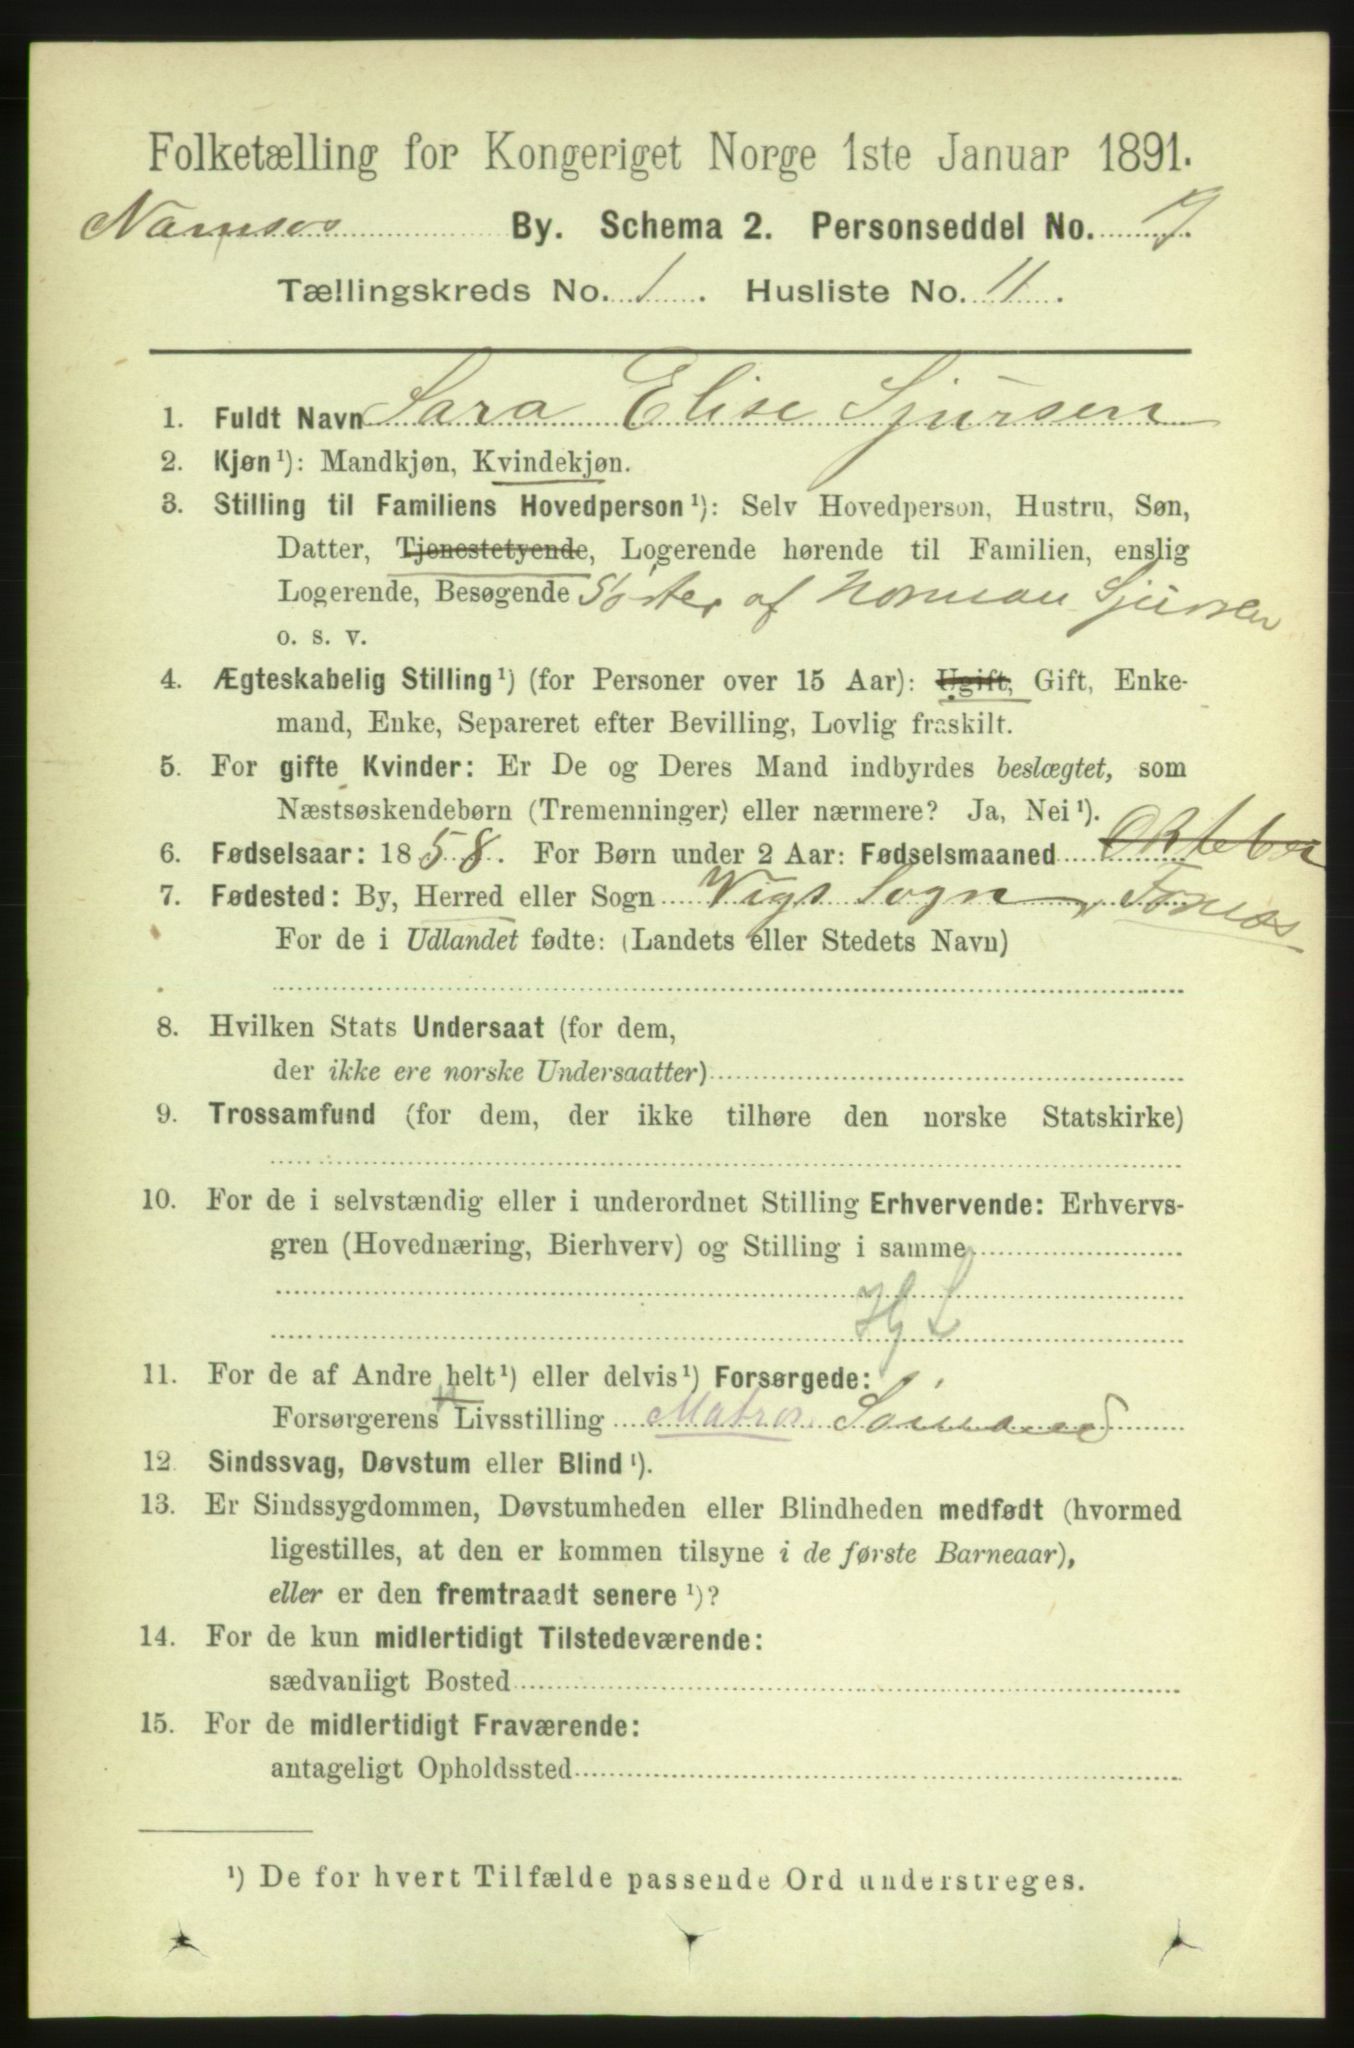 Folketælling for Kongeriget Norge 1ste Januar 1891.
Namsos By. Schema 2. Personseddel No. 7.
Tællingskreds No. 1. Husliste No. 11.
1. Fuldt Navn Sara Elise Sjursen
2. Kjøn ¹): Mandkjøn, Kvindekjøn.
3. Stilling til Familiens Hovedperson ¹): Selv Hovedperson, Hustru, Søn,
Datter, Tjenestetyende, Logerende hørende til Familien, enslig
Logerende, Besøgende Søster af Norman Sjursen
o. s. v.
4. Ægteskabelig Stilling ¹) (for Personer over 15 Aar): Ugift, Gift, Enke-
mand, Enke, Separeret efter Bevilling, Lovlig fraskilt.
5. For gifte Kvinder: Er De og Deres Mand indbyrdes beslægtet, som
Næstsøskendebørn (Tremenninger) eller nærmere? Ja, Nei ¹).
6. Fødselsaar: 1858. For Børn under 2 Aar: Fødselsmaaned Oktober
7. Fødested: By, Herred eller Sogn Vigs Sogn, Fosnæs
For de i Udlandet fødte: (Landets eller Stedets Navn)
8. Hvilken Stats Undersaat (for dem,
der ikke ere norske Undersaatter)
9. Trossamfund (for dem, der ikke tilhøre den norske Statskirke)
10. For de i selvstændig eller i underordnet Stilling Erhvervende: Erhvervs-
gren (Hovednæring, Bierhverv) og Stilling i samme
Hj L
11. For de af Andre helt ¹) eller delvis ¹) Forsørgede:
Forsørgerens Livsstilling Matros Sømand
12. Sindssvag, Døvstum eller Blind ¹).
13. Er Sindssygdommen, Døvstumheden eller Blindheden medfødt (hvormed
ligestilles, at den er kommen tilsyne i de første Barneaar),
eller er den fremtraadt senere ¹)?
14. For de kun midlertidigt Tilstedeværende:
sædvanligt Bosted
15. For de midlertidigt Fraværende:
antageligt Opholdssted
¹) De for hvert Tilfælde passende Ord understreges.